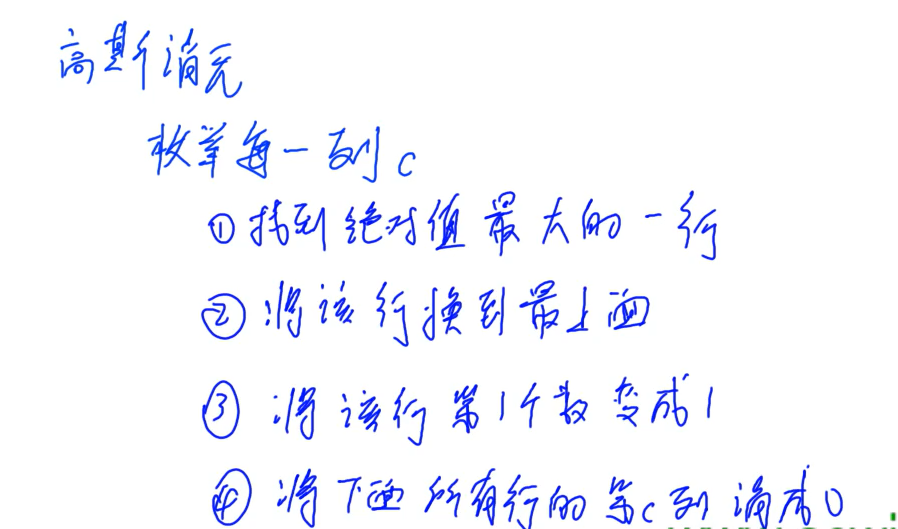 高斯消元
枚举每一列c
① 找到绝对值最大的一行
② 将该行换到最上面
③ 将该行第1个数变成1
④ 将下面所有行的第c列消成0